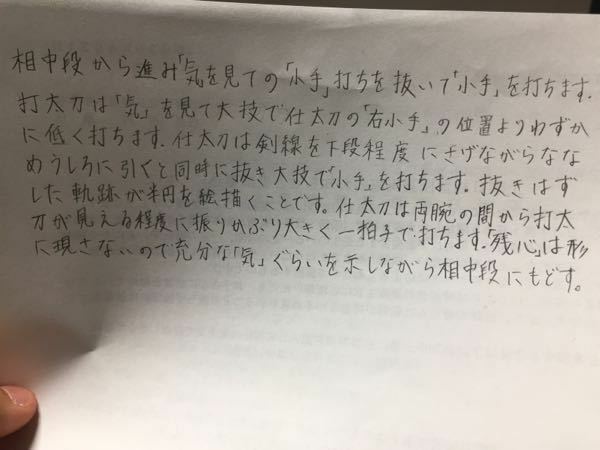 相中段から進み「気を見ての「小手」打ちを抜いて「小手」を打ちます.
打太刀は「気」を見て大技で仕太刀の「右小手」の位置よりわずか
に低く打ちます.仕太刀は剣線を下段程度にさげながらなな
めうしろに引くと同時に抜き大技で「小手」を打ちます.抜きはず
した軌跡が半円を絵描くことです。仕太刀は両腕の間から打太
刀が見える程度に振りかぶり大きく一拍子で打ちます.「残心」は形
に現さないので充分な「気」ぐらいを示しながら相中段にもどす。